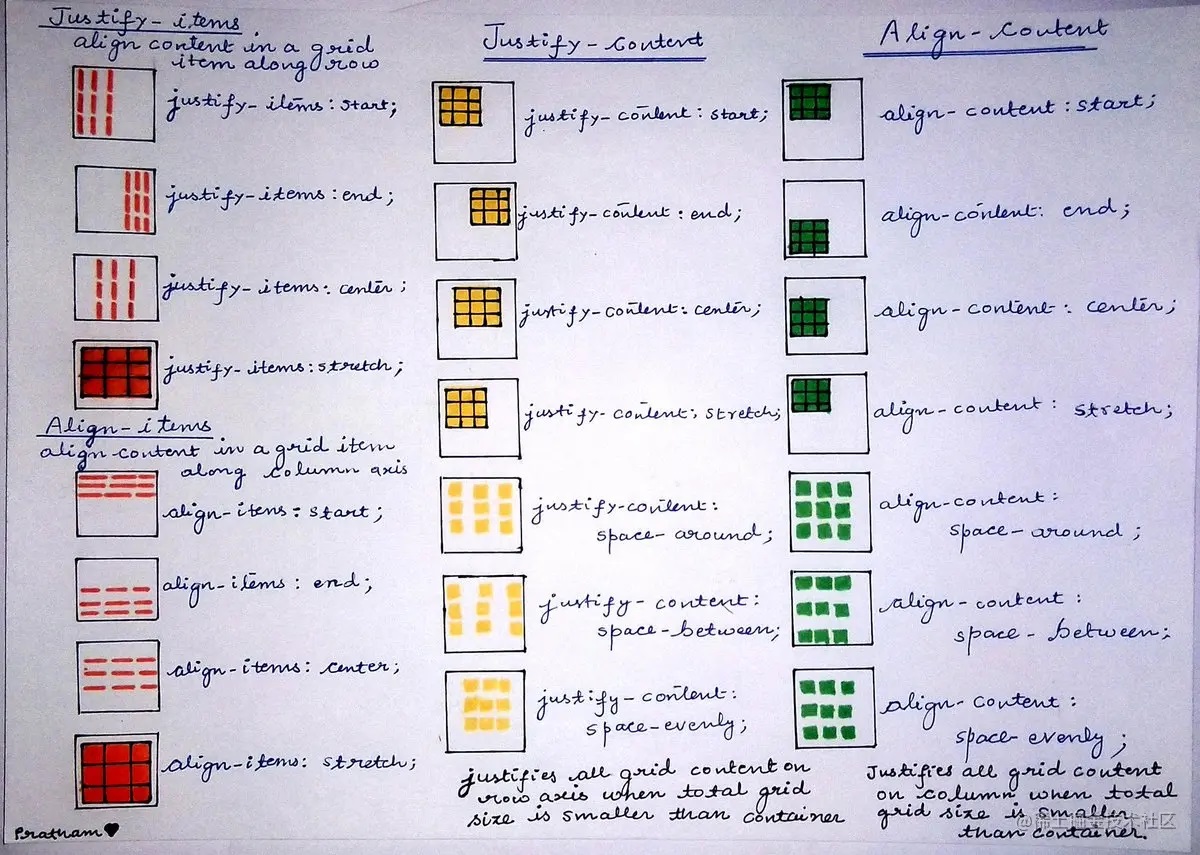 Justify-items
align content in a grid
item along row
justify-items: start;
justify-items: end;
justify-items: center;
justify-items: stretch;
Align-items
align-content in a grid item
along column axis
align-items: start;
align-items: end;
align-items: center;
align-items: stretch;
Pratham
Justify-Content
justify-content: start;
justify-content: end;
justify-content: center;
justify-content: stretch;
justify-content:
space-around;
justify-content:
space-between;
justify-content:
space-evenly;
justifies all grid content on
row axis when total grid
size is smaller than container
Align-Content
align-content: start;
align-content: end;
align-content: center;
align-content: stretch;
align-content:
space-around;
align-content:
space-between;
align-content:
space-evenly;
Justifies all grid content
on column when total
grid size is smaller
than container.
@稀土掘金技术社区